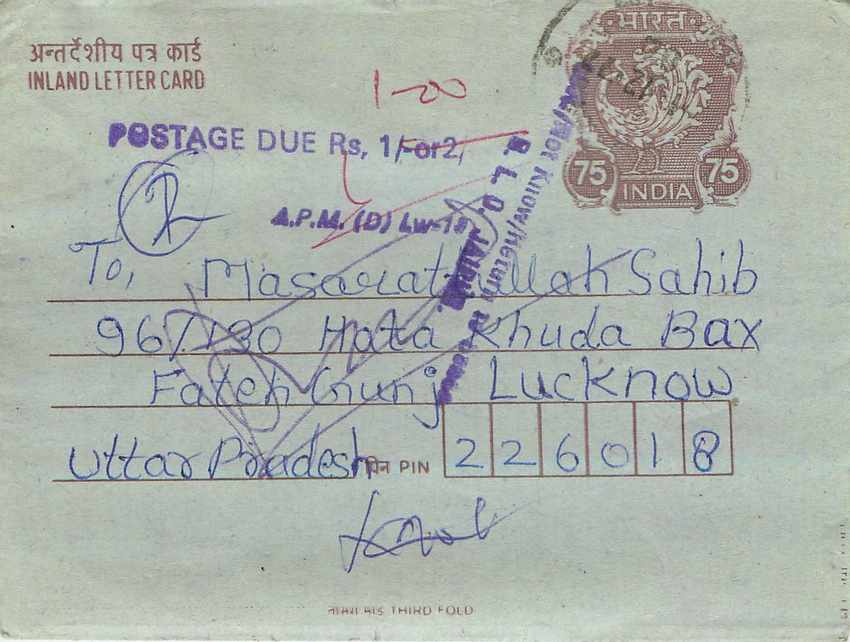 अन्तर्देशीय पत्र कार्ड
INLAND LETTER CARD
भारत
75 75
INDIA
1-00
POSTAGE DUE Rs, 1/-or2/
A.P.M. (D) Lw-18
R. L. O. JAIPUR.
Not Know/Return to Sender
To,
Masaratullah Sahib
96/130 Hata Khuda Bax
Fateh Gunj Lucknow
Uttar Pradesh पिन PIN 226018
THIRD FOLD